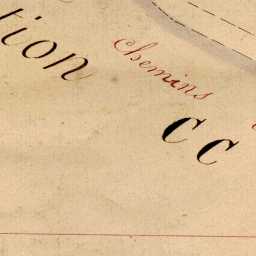 tion
Chemins
CC